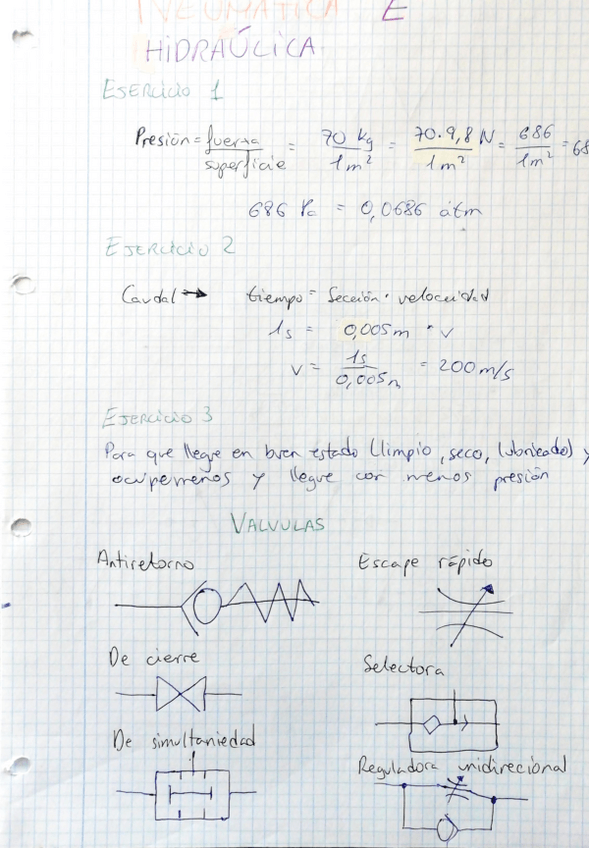 NEUMÁTICA E
HIDRAÚLICA
EJERCICIO 1
Presión = fuerza / superficie = 70 kg / 1 m² = 70·9,8 N / 1 m² = 686 / 1 m² = 68
686 Pa = 0,0686 atm
EJERCICIO 2
Caudal → tiempo = Sección · velocidad
1s = 0,005m · v
v = 1s / 0,005m = 200 m/s
EJERCICIO 3
Para que llegue en buen estado (limpio, seco, lubricado) y
ocupe menos y llegue con menos presión
VALVULAS
Antiretorno
Escape rápido
De cierre
Selectora
De simultaniedad
Reguladora unidirecional